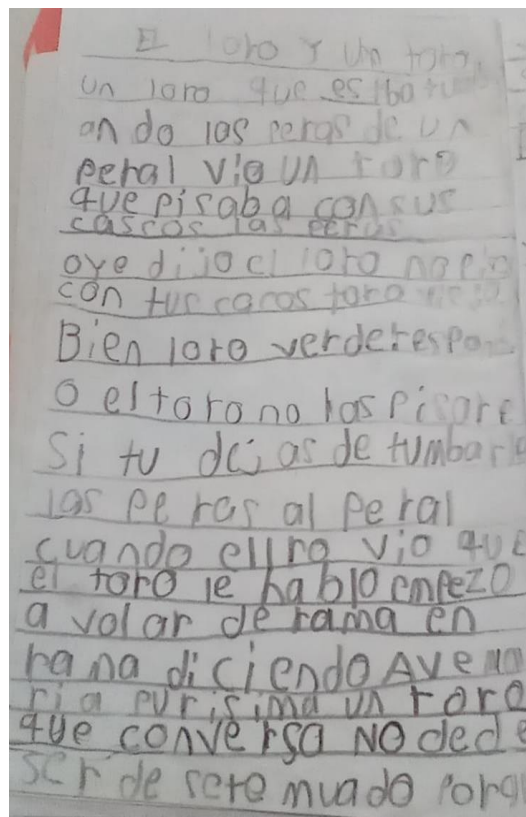 El loro y un toro.
un loro que estba tum
an do las peras de un
peral vio un toro
que pisaba con sus
cascos las peras
oye dijo el loro no pi
con tus cacos toro viejo
Bien loro verde respon
o el toro no las pisare
si tu dejas de tumbarle
las pe ras al peral
cuando ellro vio que
el toro le hablo empezo
a volar de rama en
rana diciendo Ave ma
ria purisima un toro
que conversa No ded e
ser de sete muado porq